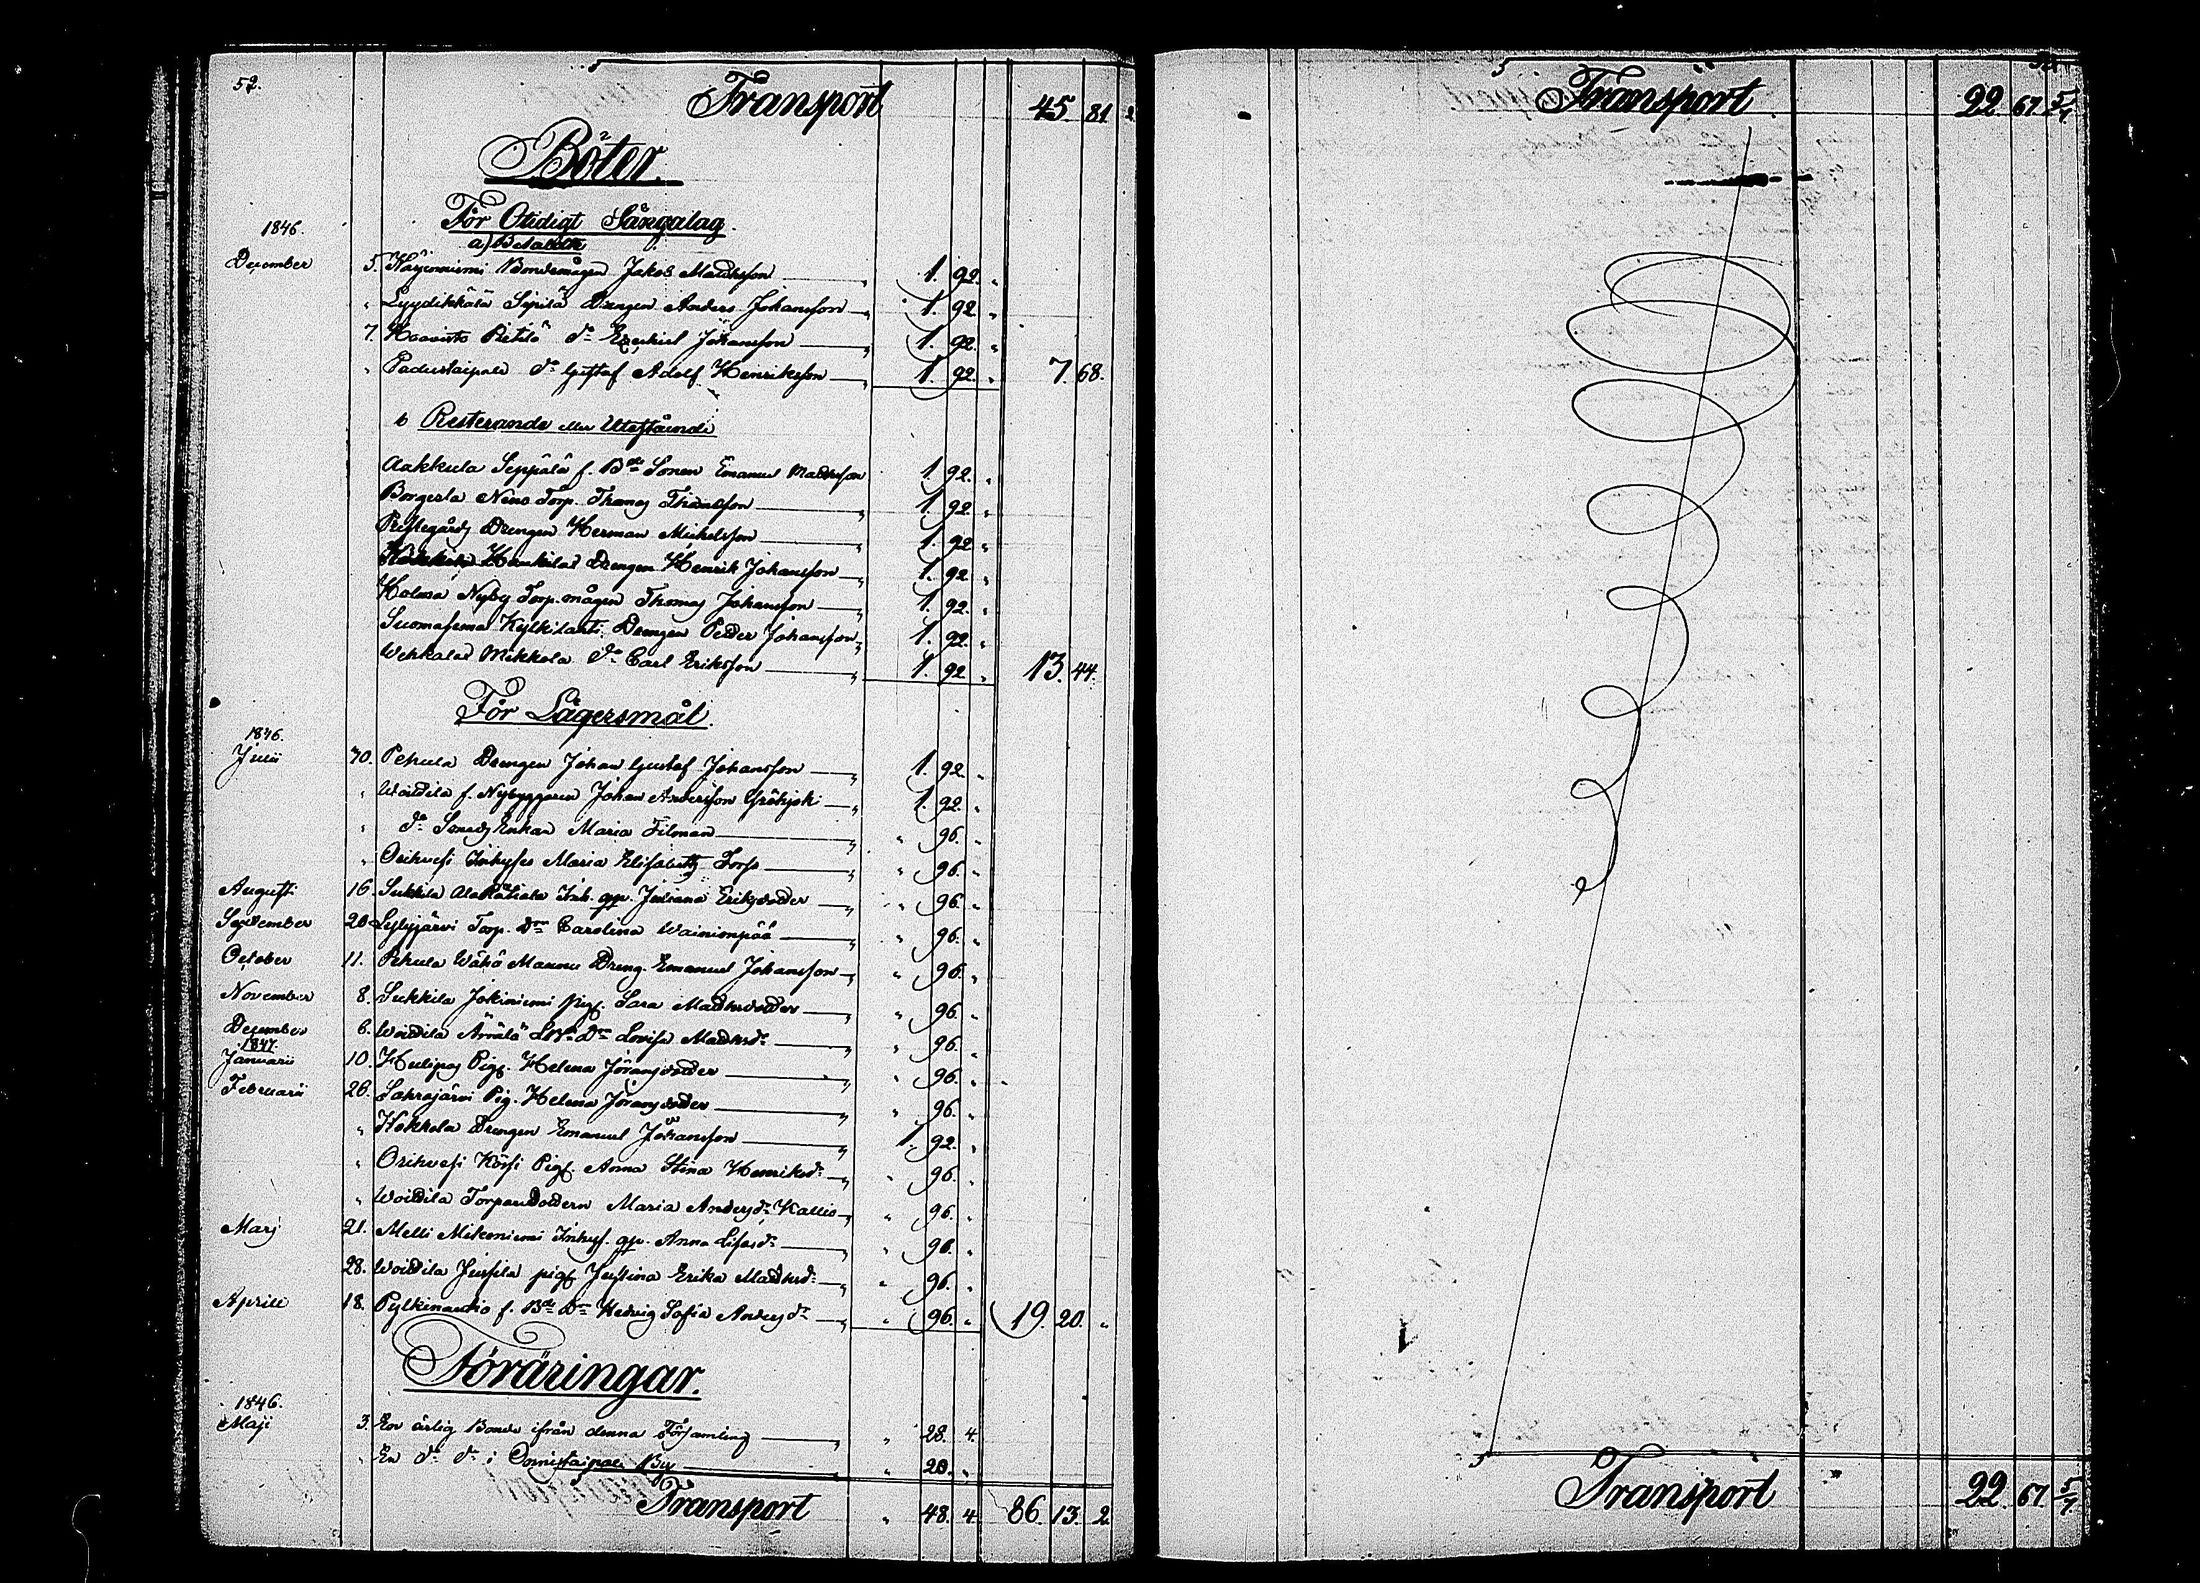 52.
Transport 45. 81. 2
Böter.
För Otidigt Sängalag.
a) Betalde
1846.
December 5. Bondemågen Jakob Mattsson 1. 92. "
" Lyydikkälä Sipilä Drengen Anders Johansson 1. 92. "
7. Haavisto Pietilä do Ezechiel Johansson 1. 92. "
" Padustaipale do Gustaf Adolf Henriksson 1. 92. " 7. 68.
b Resterande eller Utestående
Aakkula Seppälä f. Bde Sonen Emanuel Mattsson 1. 92. "
Borgerla Torp. Thomas Thomasson 1. 92. "
Prestegårds Drengen Herman Michelsson 1. 92. "
Drengen Henrik Johansson 1. 92. "
Holma Nyby Torp.mågen Thomas Johansson 1. 92. "
Suomasema Kylkilahti Drengen Peder Johansson 1. 92. "
Wehkalas Mikkola do Carl Eriksson 1. 92. " 13. 44.
För Lägersmål.
1846.
Junii 70. Pehula Drengen Johan Gustaf Johansson 1. 92. "
" Woitila f. Nybyggaren Johan Andersson 1. 92. "
" do Enkan Maria Filman " 96. "
" Orihvesi Inhyses Maria Elisabeth " 96. "
Augusti 16. Sukkila Inh. qp. Juliana Eriksdotter " 96. "
September 20. Lylyjärvi Torp. Dr Carolina Wainionpää " 96. "
October 11. Pehula Wähä Maunu Dreng. Emanuel Johansson " 96. "
November 8. Sukkila Jokiniemi Pig. Sara Mattsdotter " 96. "
December 6. Woitila Dr Lovisa Mattsdr " 96. "
1847.
Januarii 10. Pig. Helena Göransdotter " 96. "
Februarii 26. Sahrajärvi Pig. Helena Göransdotter " 96. "
" Kokkola Drengen Emanuel Johansson 1. 92. "
" Orihvesi Körsi Pig. Anna Stina Henriksdr " 96. "
" Woitila Torparedottern Maria Andersdr Kallio " 96. "
Mars 21. Melli Mikoniemi Inhys. qp. Anna " 96. "
28. Woitila Jussila pig. Justina Erika Mattsdr " 96. "
Aprill 18. Pylkinautio f. Bde Dr Hedvig Sofia Andersdr " 96. " 19. 20. "
Föräringar.
1846.
Maji 3. En ärlig Bonde ifrån denna Församling " 28. 4.
" En do do i Tomistaipale By " 20. "
Transport " 48. 4. 86. 13. 2.
Transport 22. 67. 5/7
Transport " 22. 67. 5/7